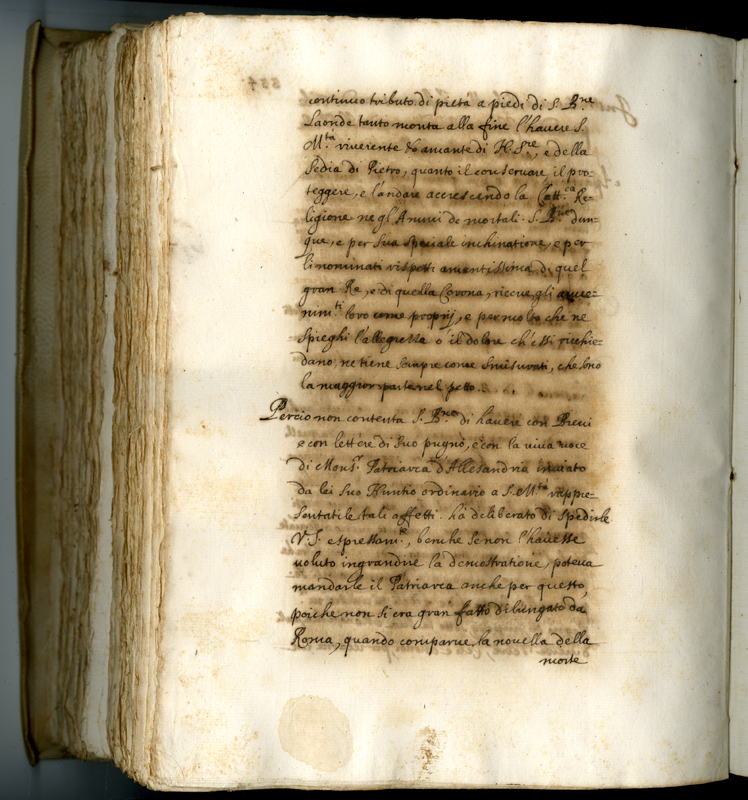 continuo tributo di pietà a piedi di S. B.ne
Laonde tanto monta alla fine l'havere S.
M.tà riverente et amante di N. S.re, e della
Sedia di Pietro, quanto il conservare, il pro=
teggere, e l'andare accrescendo la Catt.ca Re=
ligione negl'Animi de mortali. S. B.ne dun=
que, e per sua speciale inclinatione, e per
li nominati rispetti amantissima di quel
gran Re, e di quella Corona, riceve gli avve=
nim.ti loro come proprij, e per molto che ne
spieghi l'allegrezza o il dolore ch'essi richie=
dano, ne tiene sempre come smisurati, che sono
la maggior parte nel petto.
Percio non contenta S. B.ne di havere con Brevi
e con lettere di suo pugno, e con la viva voce
di Mons.r Patriarca d'Allesandria inviato
da lei suo Nuntio ordinario a S. M.tà rappre=
sentatile tali affetti. hà deliberato di spedirle
V. S. espressam.te, benche se non l'havesse
voluto ingrandire la demostratione, poteva
mandarle il Patriarca anche per questo,
poiche non si era gran fatto dilungato da
Roma, quando comparve la novella della
morte